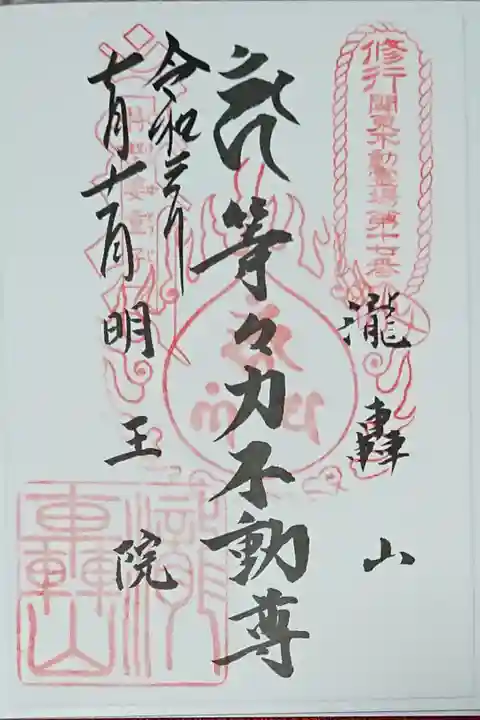 修行 関東不動霊場第十七番
瀧轟山
等々力不動尊
令和三年
七月十一日
明王院
瀧轟山